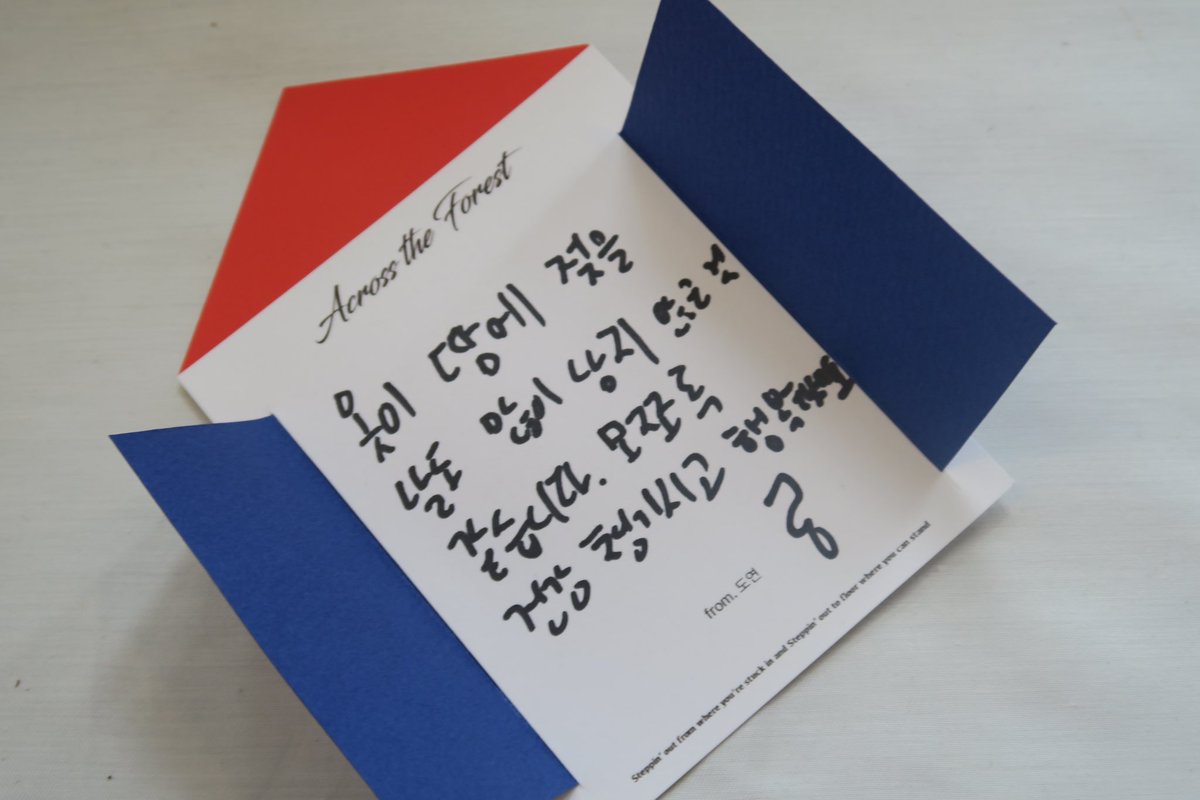 Across the Forest
옷이 땀에 젖을
날도 많이 남지 않은 것
같습니다. 모쪼록
건강 챙기시고
from. 도연
Steppin' out from where you're stuck in and Steppin' out to floor where you can stand